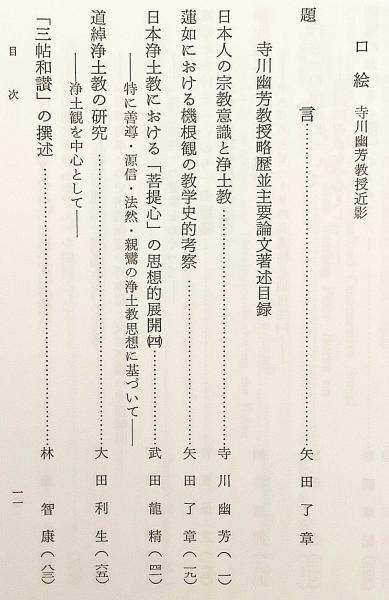 口絵 寺川幽芳教授近影
題言……………………………矢田了章
寺川幽芳教授略歴並主要論文著述目録
日本人の宗教意識と浄土教……………………………寺川幽芳(一)
蓮如における機根観の教学史的考察……………………………矢田了章(一九)
日本浄土教における「菩提心」の思想的展開㈣……………………………武田龍精(四一)
――特に善導・源信・法然・親鸞の浄土教思想に基づいて――
道綽浄土教の研究……………………………大田利生(六五)
――浄土観を中心として――
「三帖和讃」の撰述……………………………林智康(八三)
目次
一一